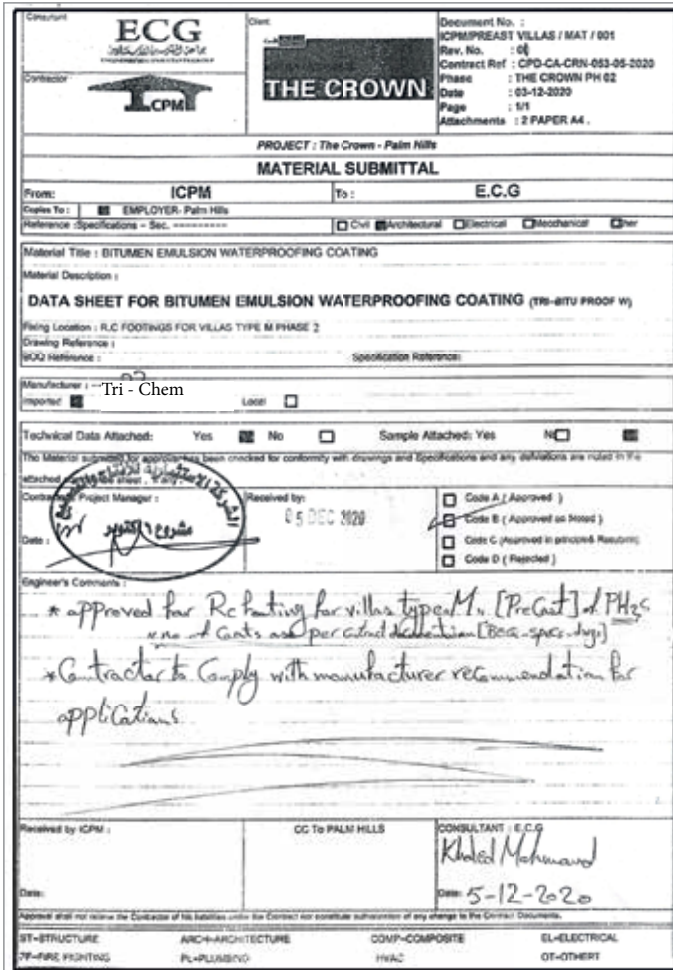 Consultant
ECG
Client
THE CROWN
Document No. :
ICPM/PREAST VILLAS / MAT / 001
Rev. No. : 0
Contract Ref : CPD-CA-CRN-053-05-2020
Phase : THE CROWN PH 02
Date : 03-12-2020
Page : 1/1
Attachments : 2 PAPER A4 .
Contractor
ICPM
PROJECT : The Crown - Palm Hills
MATERIAL SUBMITTAL
From: ICPM To : E.C.G
Copies To : EMPLOYER- Palm Hills
Reference :Specifications - Sec. ---------- Civil Architectural Electrical Meochanical
Material Title : BITUMEN EMULSION WATERPROOFING COATING
Material Description :
DATA SHEET FOR BITUMEN EMULSION WATERPROOFING COATING (TRI-BITU PROOF W)
Fixing Location : R.C FOOTINGS FOR VILLAS TYPE M PHASE 2
Drawing Reference :
BOQ Reference : Specification Reference:
Manufacturer : Tri - Chem
Imported Local
Technical Data Attached: Yes No Sample Attached: Yes
The Material submitted for approval has been checked for conformity with drawings and Specifications and any deviations are noted in the
attached sheet , if any
Contractor Project Manager :
Date :
مشروع ٦ اكتوبر
Received by:
05 DEC 2020
Code A ( Approved )
Code B ( Approved as Noted )
Code C (Approved in principle& Resubmit)
Code D ( Rejected )
Engineer's Comments :
* approved for Rc footing for villas type M [PreCast] of
no of Coats as per
* Contractor to Comply with manufacturer recommendation for
applications
Received by ICPM :
Date:
CC To PALM HILLS
CONSULTANT : E.C.G
Khaled Mahmoud
Date: 5-12-2020
Approval shall not relieve the Contractor of his liabilities under the Contract nor constitute authorization of any change to the Contract Documents.
ST=STRUCTURE ARCH=ARCHITECTURE COMP=COMPOSITE EL=ELECTRICAL
FF=FIRE FIGHTING PL=PLUMBING HVAC OT=OTHERT